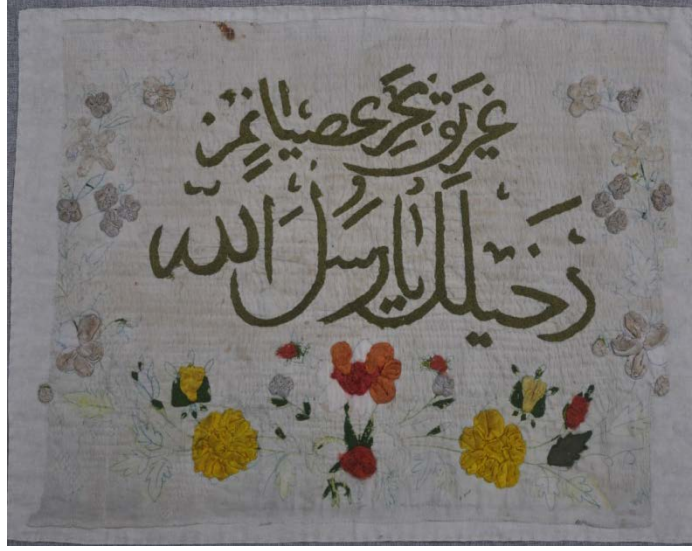 غريق بحر عصيانمز
دخيلك يا رسُل الله